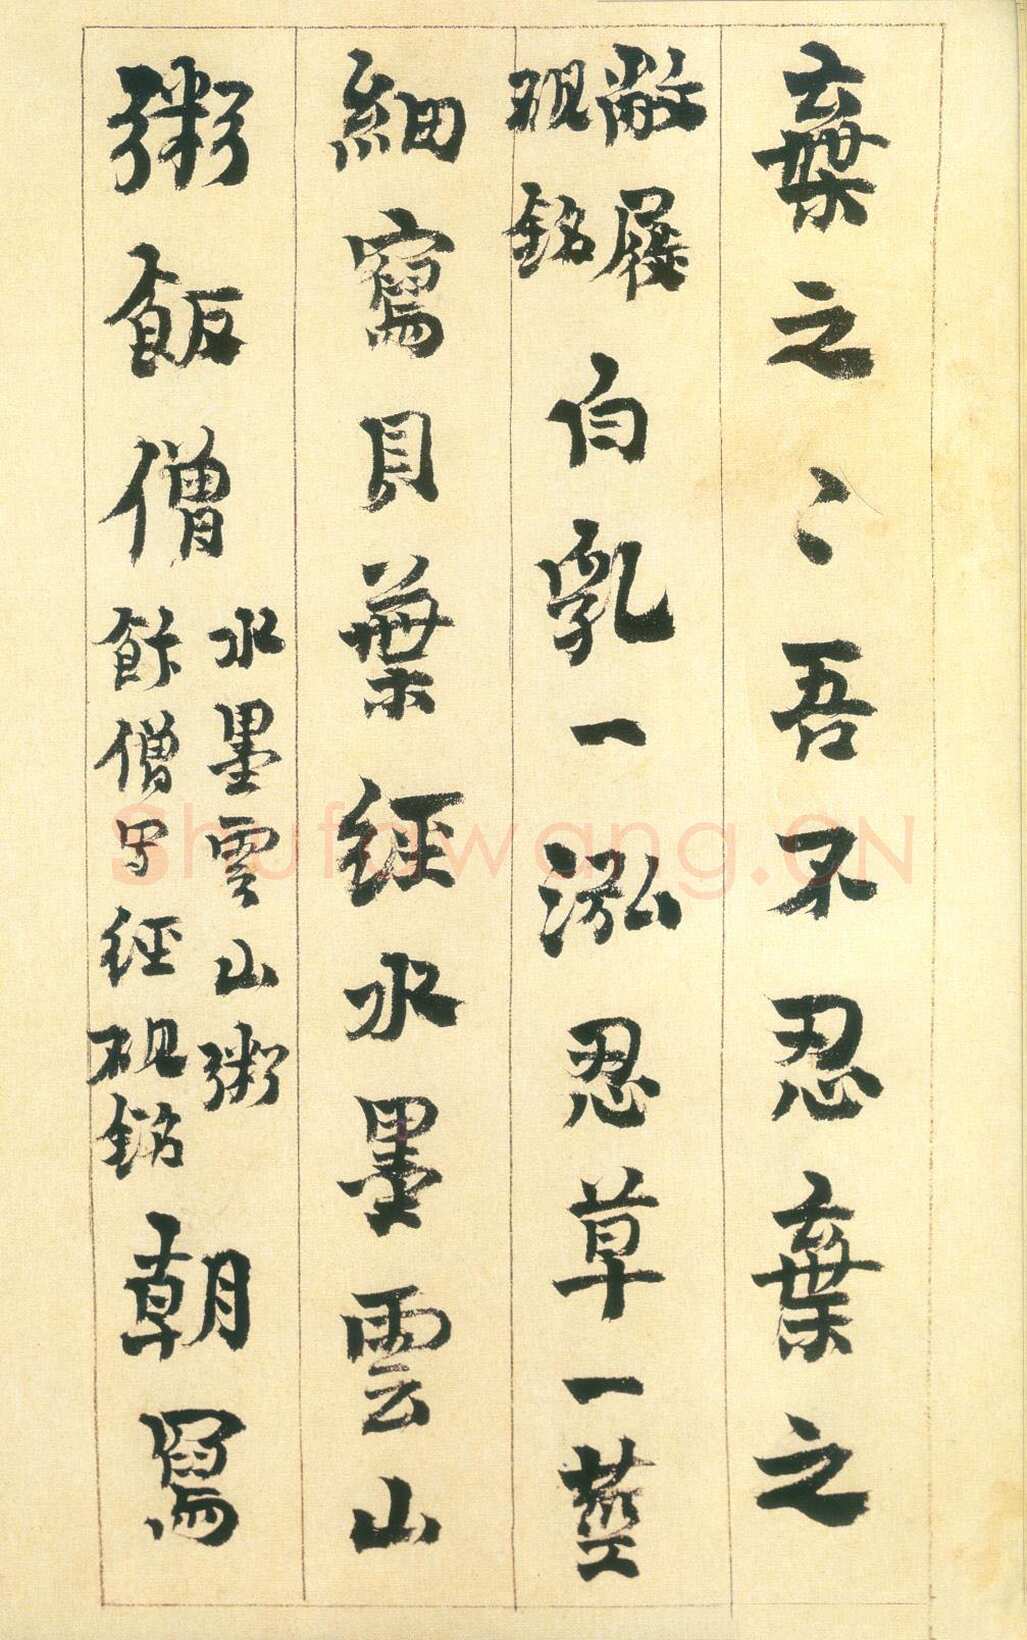 棄之〻吾不忍棄之
敝屐
硯銘
白乳一泓忍草一莖
細寫貝葉經水墨雲山
粥飯僧
水墨雲山粥
飯僧写經硯銘
朝冩
Shufawang.CN